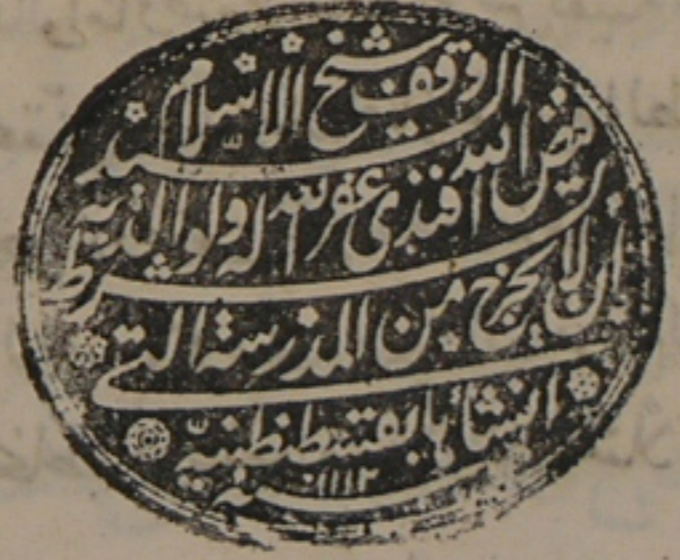 وقف شيخ الاسلام السيد
فيض الله افندى غفر الله له ولوالديه بشرط
أن لا يخرج من المدرسة التى
انشأها بقسطنطنيّة
سنه ١١١٢